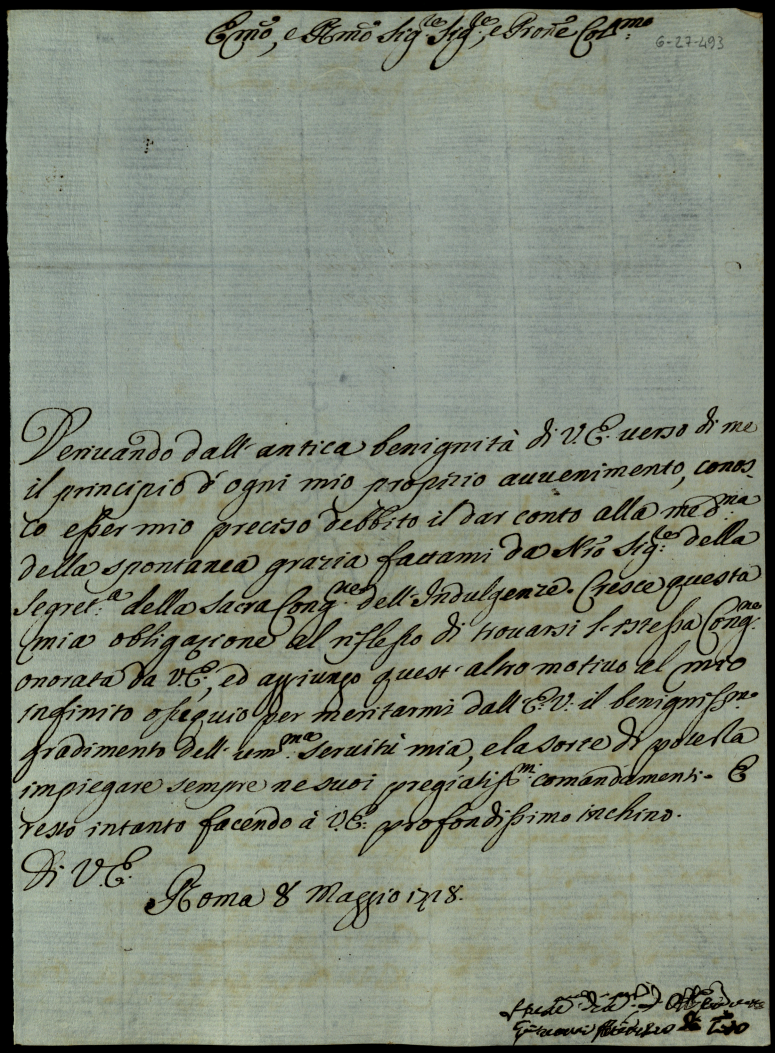 Emo, e Rmo Sig.re Sig.re, e Prone Col.mo
6-27-493
Deriuando dall'antica benignità di V.E. uerso di me
il principio d'ogni mio propizio auuenimento, conos-
co esser mio preciso debbito il dar conto alla med.ma
della spontanea grazia fattami da Nro Sig.re della
Segret.a della Sacra Cong.ne dell'Indulgenze. Cresce questa
mia obligazione al riflesso di trouarsi l'istessa Cong.ne
onorata da V.E., ed aggiungo quest'altro motiuo al mio
infinito ossequio per meritarmi dall'E.V. il benigniss.o
gradimento dell'um.ma seruitù mia, e la sorte di poterla
impiegare sempre ne suoi pregiatiss.mi comandamenti. E
resto intanto facendo à V.E. profondissimo inchino.
Di V.E.
Roma 8 Maggio 1718.